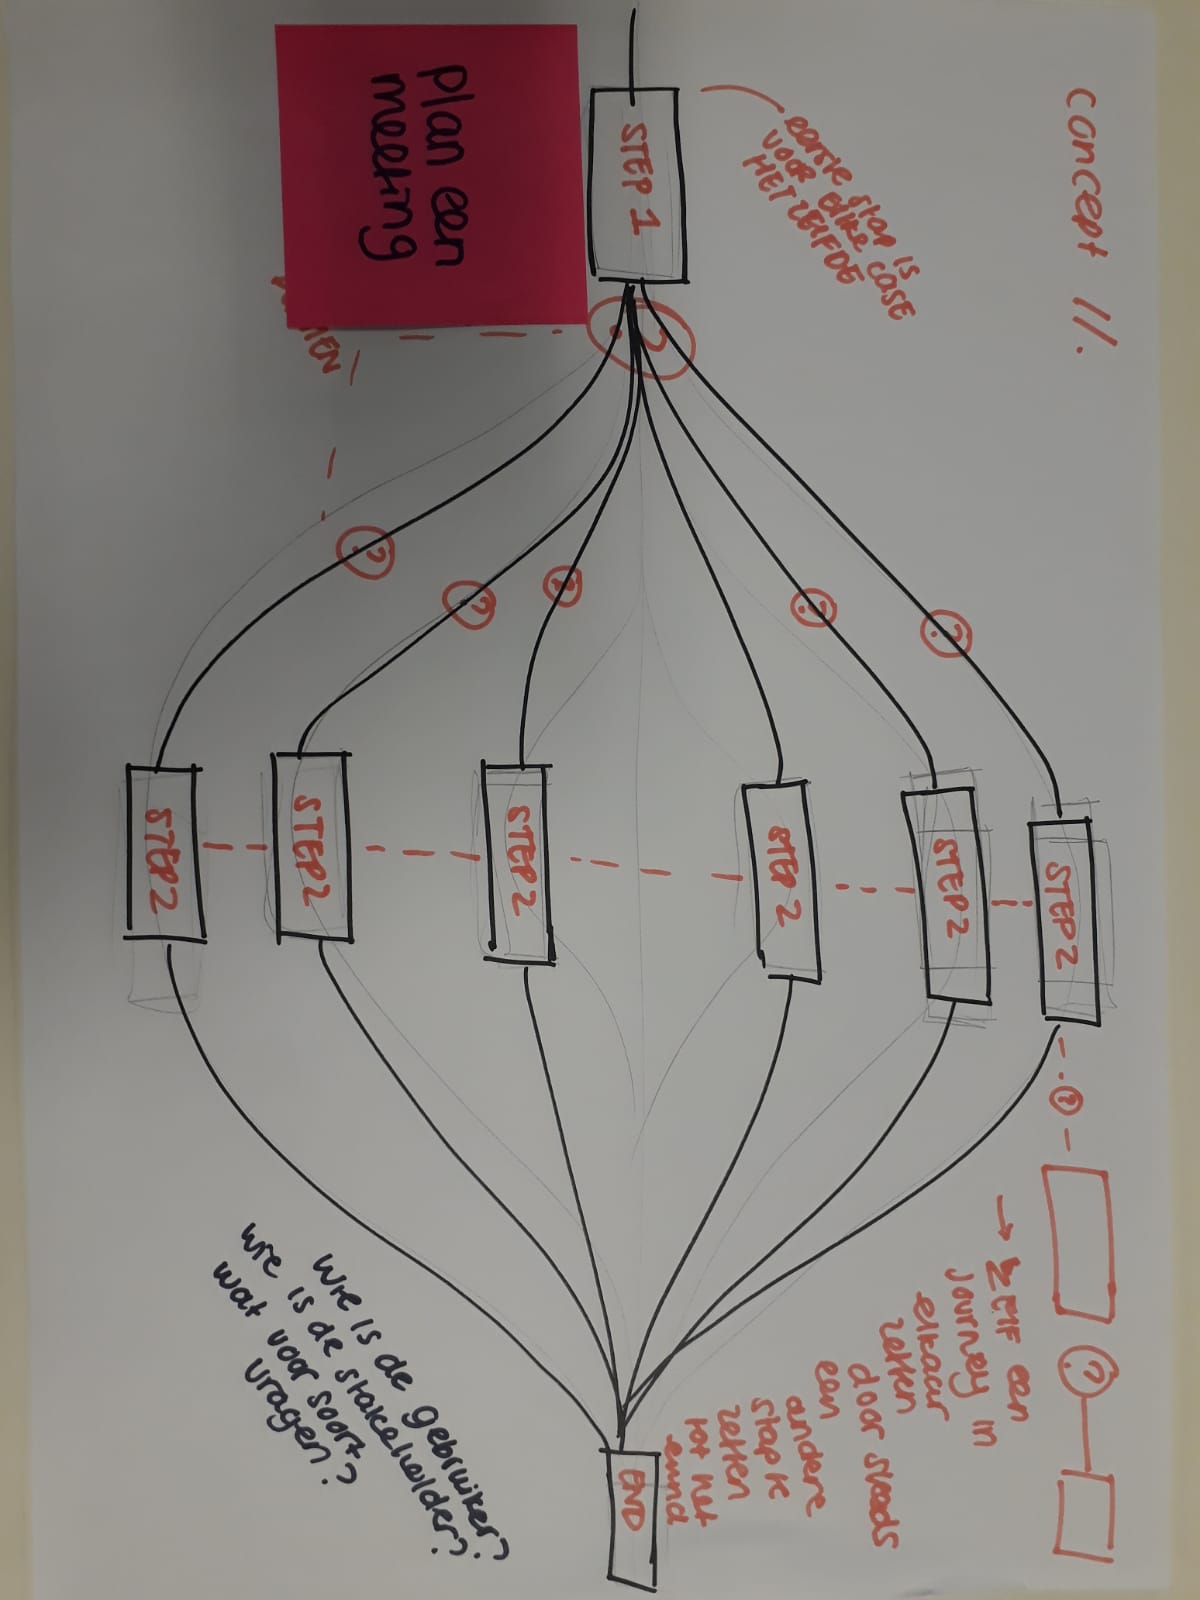 concept 11.
eerste stap is
voor elke case
HET ZELFDE
STEP 1
plan een
meeting
?
?
?
?
?
?
STEP 2
STEP 2
STEP 2
STEP 2
STEP 2
STEP 2
?
?
→ ZELF een
journey in
elkaar
zetten
door steeds
een
andere
stap te
zetten
tot het
eind
END
Wie is de gebruiker?
wie is de stakeholder?
wat voor soort
vragen?